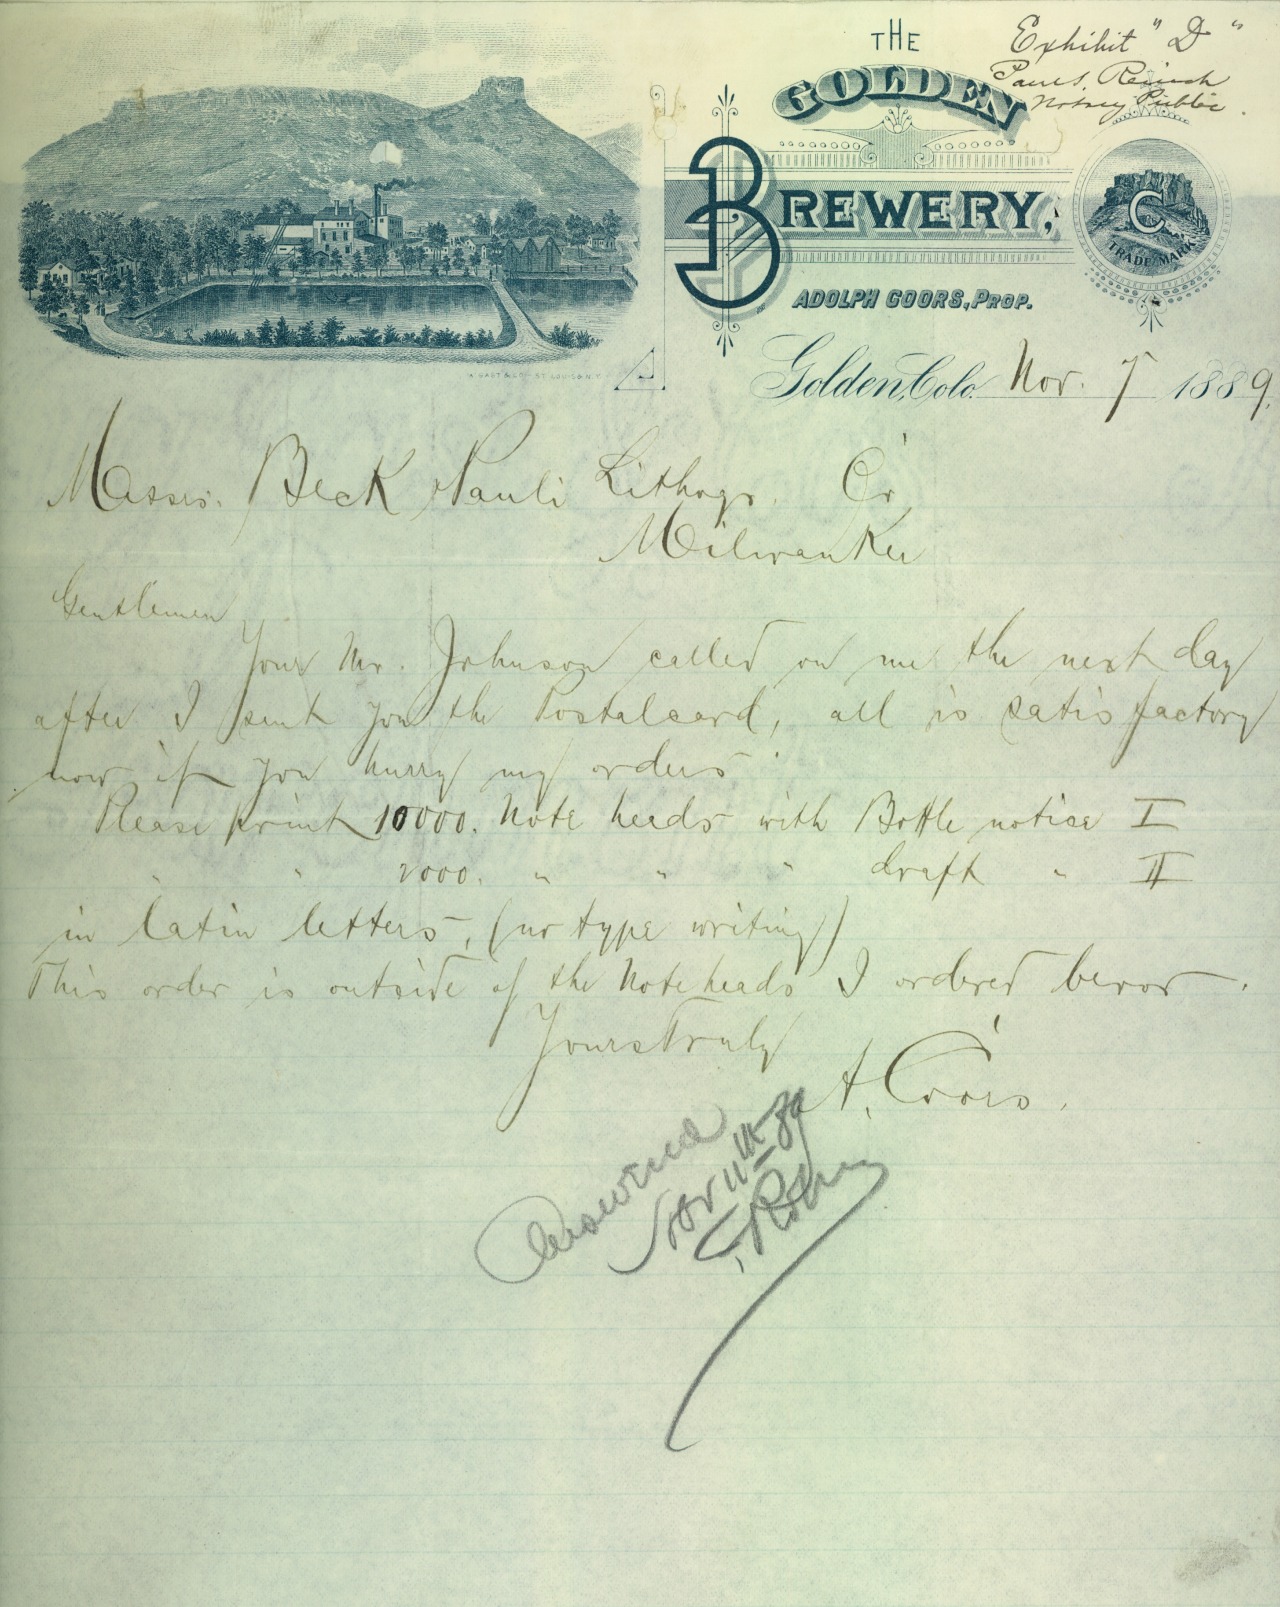 THE
GOLDEN
BREWERY,
ADOLPH COORS, PROP.
Exhibit "D"
Paul S. Reinsch
Notary Public.
C
TRADE MARK
Golden, Colo. Nov. 7 1889.
Messrs. Beck & Pauli Lithogr. Co
Milwaukee
Gentlemen
Your Mr. Johnson called on me the next day
after I sent you the Postalcard, all is satisfactory
now if you hurry my orders.
Please print 10000. Note heads with Bottle notice I
" " 2000. " " " draft " II
in latin letters, (no type writing)
This order is outside of the Noteheads I ordered bevor.
Yours Truly
A. Coors.
Answered
Nov 11th 89